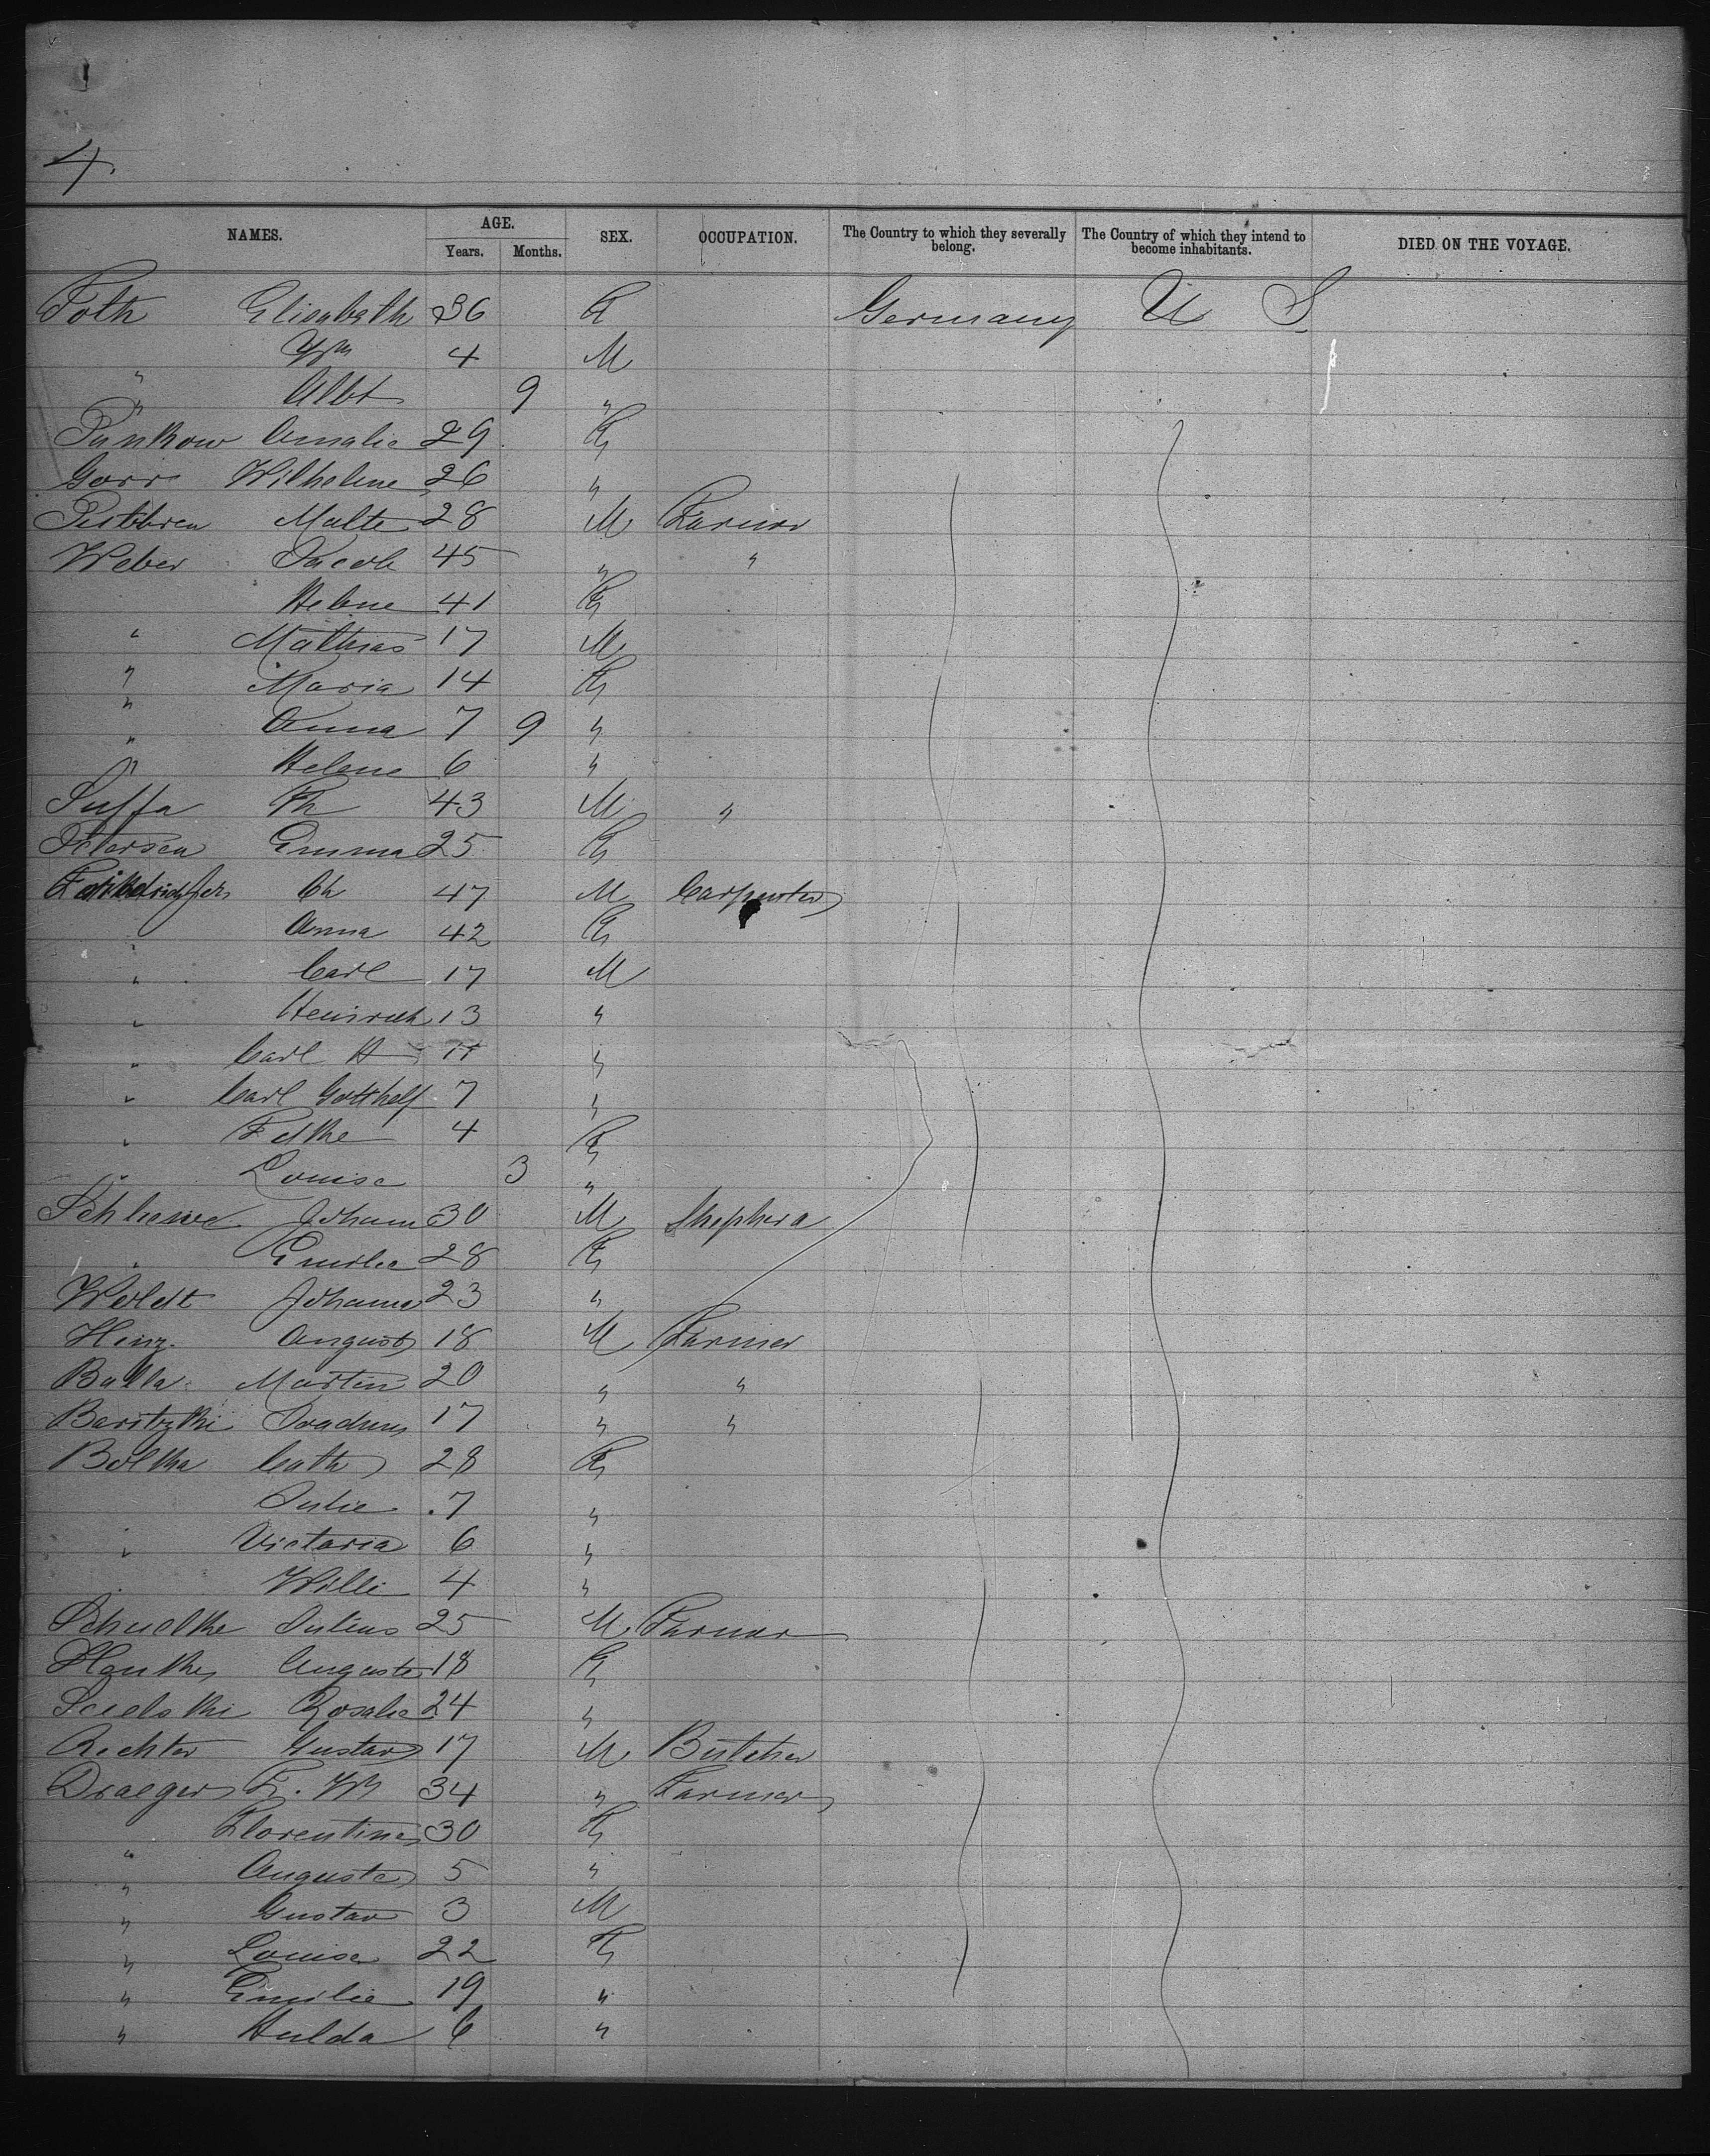 4.
NAMES. AGE. SEX. OCCUPATION. The Country to which they severally belong. The Country of which they intend to become inhabitants. DIED ON THE VOYAGE.
Years. Months.
Foth Elisabeth 36 F Germany U S
Wm 4 M
" Albt 9 "
" Pankow Amalie 29 F
Gorr Wilhelme 26 "
Malte 28 M Farmer
Weber Jacob 45 " "
Helene 41 F
" Mathias 17 M
" Maria 14 F
" Anna 7 9 "
" Helene 6 "
" Suffa Fh 43 M "
Petersen Emma 25 F
Ch 47 M Carpenter
" Anna 42 F
" Carl 17 M
" Heinrich 13 "
" Carl H 11 "
" Carl Gotthelf 7 "
" 4 F
" Louise 3 "
Johann 30 M Shepherd
" Emilie 28 F
Woldt Johanna 23 "
Hinz August 18 M Farmer
Balla Martin 20 " "
Baritzki 17 " "
Bolka Cath 28 F
Julie 7 "
" Victoria 6 "
Willi 4 "
Julius 25 M Farmer
Hanke Auguste 18 F
Rosalie 24 "
Richter Gustav 17 M Butcher
Draeger F. Wm 34 " Farmer
Florentine 30 F
" Auguste 5 "
" Gustav 3 M
" Louise 22 F
" Emilie 19 "
" Hulda 6 "